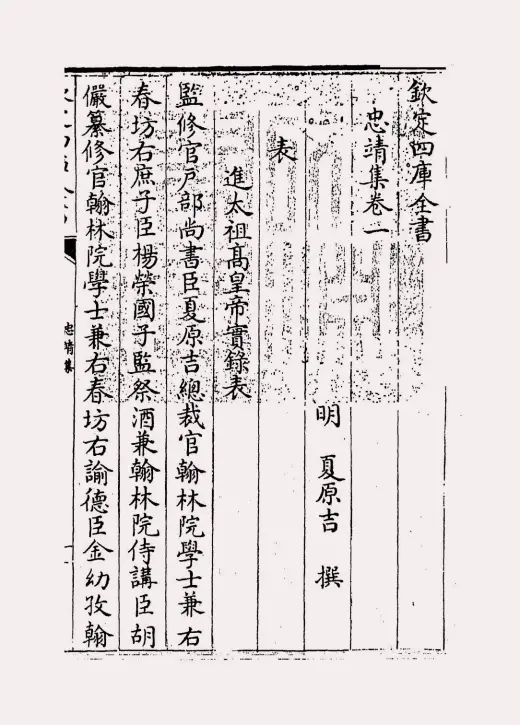 欽定四庫全書
忠靖集卷一
明 夏原吉 撰
表
進太祖高皇帝實錄表
監修官戶部尚書臣夏原吉總裁官翰林院學士兼右
春坊右庶子臣楊榮國子監祭酒兼翰林院侍講臣胡
儼纂修官翰林院學士兼右春坊右諭德臣金幼孜翰
忠靖集